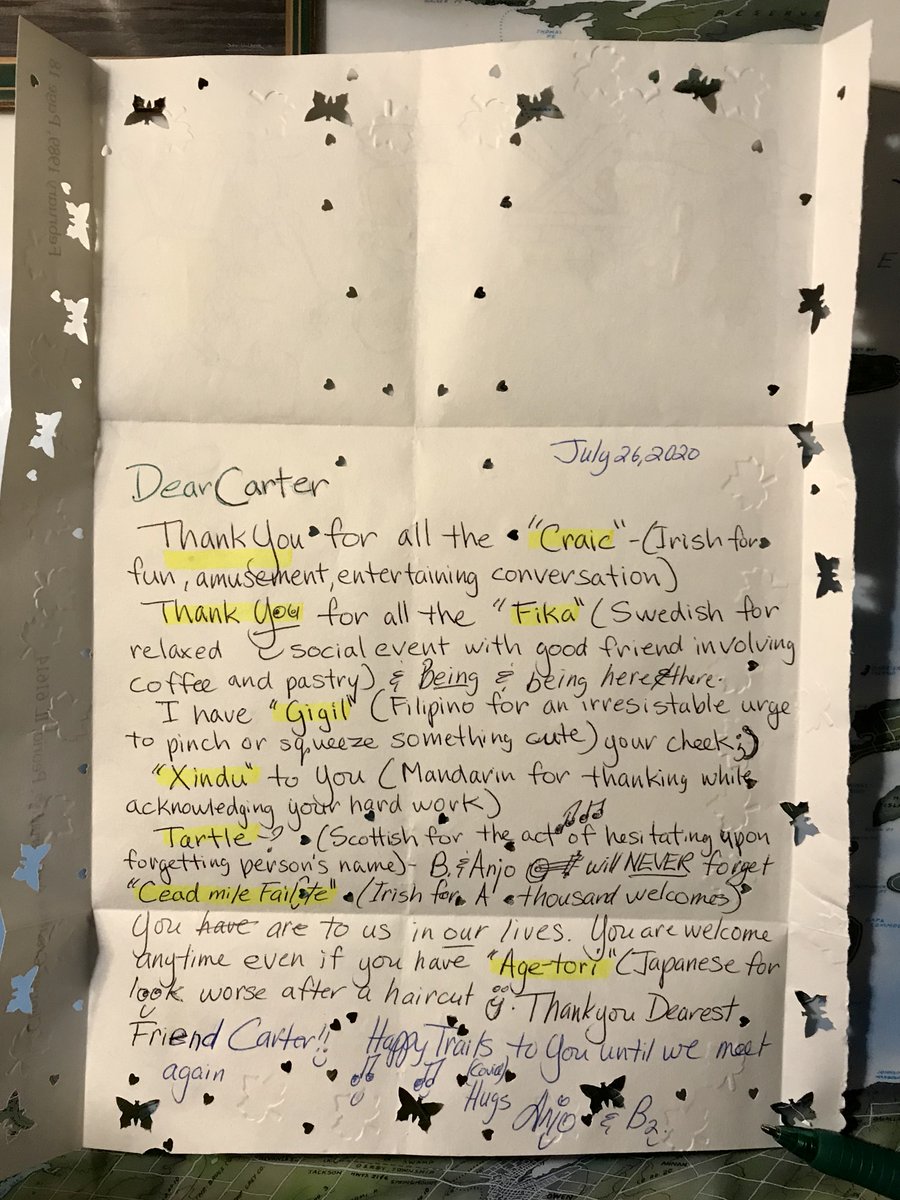 RESERVE
February 1989, Page 18
July 26, 2020
Dear Carter
Thank You for all the "Craic" - (Irish for
fun, amusement, entertaining conversation)
Thank You for all the "Fika" (Swedish for
relaxed social event with good friend involving
coffee and pastry) & Being & being here & there.
I have "Gigil" (Filipino for an irresistable urge
to pinch or squeeze something cute) your cheek ;)
"Xindu" to You (Mandarin for thanking while
acknowledging your hard work)
Tartle? (Scottish for the act of hesitating upon
forgetting person's name) - B. & Anjo will NEVER forget
"Cead mile Failte" (Irish for A thousand welcomes)
You have are to us in our lives. You are welcome
anytime even if you have "Age-tori" (Japanese for
look worse after a haircut. Thankyou Dearest
Friend Carter!! Happy Trails to You until we meet
again
(Covid)
Hugs
Anjo & B2